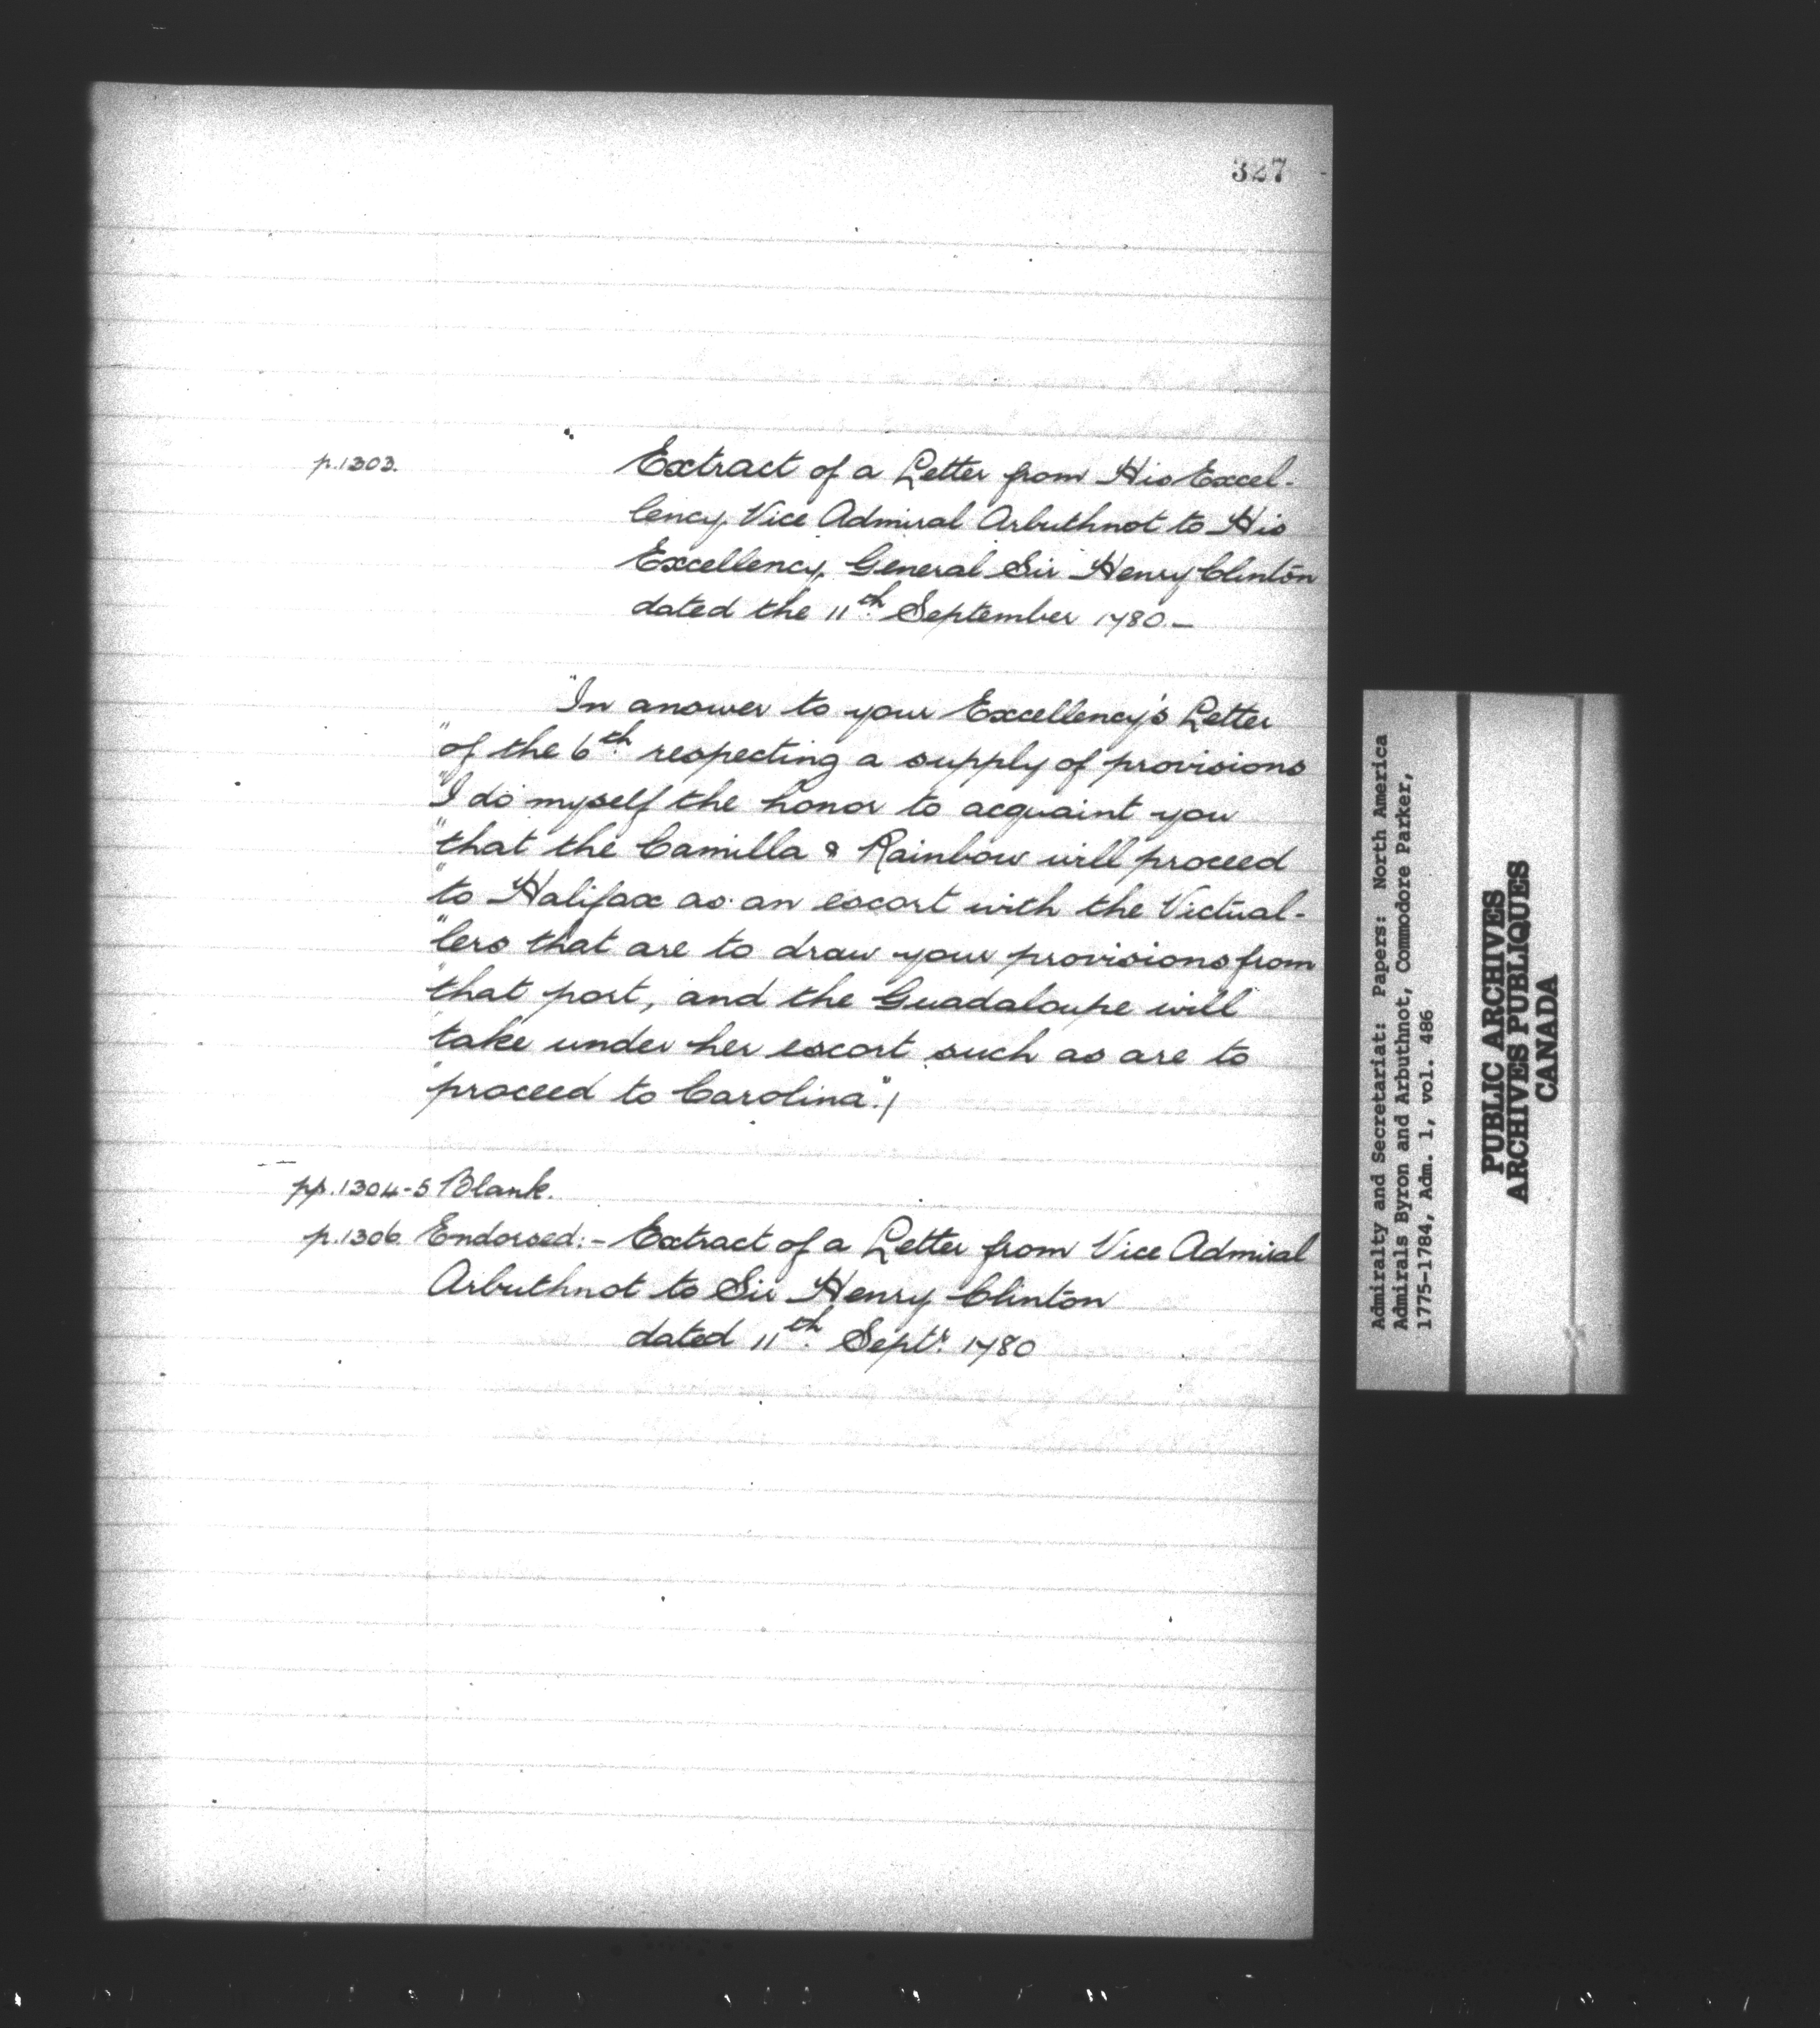 327
p.1303.
Extract of a Letter from His Excel-
lency Vice Admiral Arbuthnot to His
Excellency General Sir Henry Clinton
dated the 11th September 1780.—
"In answer to your Excellency's Letter
"of the 6th respecting a supply of provisions
"I do myself the honor to acquaint you
"that the Camilla & Rainbow will proceed
"to Halifax as an escort with the Victual-
"lers that are to draw your provisions from
"that port, and the Guadaloupe will
"take under her escort such as are to
"proceed to Carolina."/
pp.1304-5 Blank.
p.1306. Endorsed:- Extract of a Letter from Vice Admiral
Arbuthnot to Sir Henry Clinton
dated 11th Septr. 1780
Admiralty and Secretariat: Papers: North America
Admirals Byron and Arbuthnot, Commodore Parker,
1775-1784, Adm. 1, vol. 486
PUBLIC ARCHIVES
ARCHIVES PUBLIQUES
CANADA